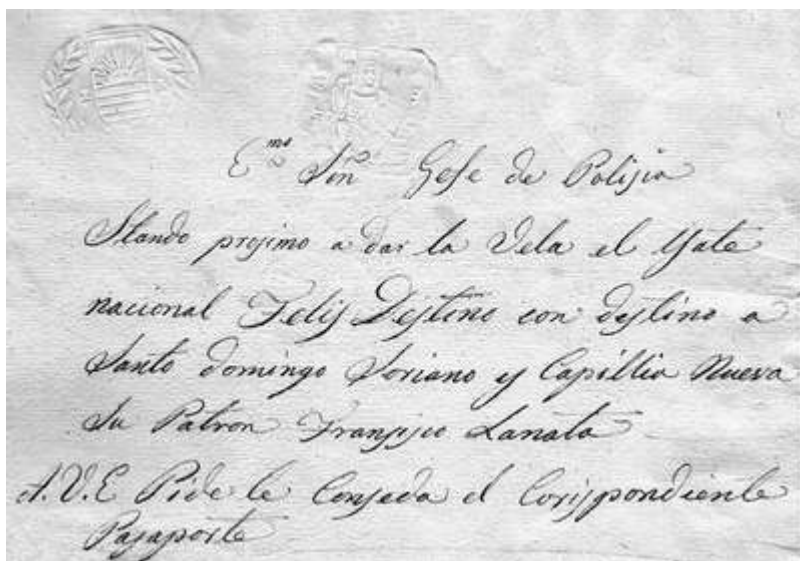 Emo Sôr Gefe de Polisia
Stando progimo a dar la Vela el Yate
nacional Felis Destino con destino a
Santo domingo Soriano y Capillia Nueva
Su Patron Fransisco Lanata
A.V.E Pide le Conseda el Corispondiente
Pasaporte